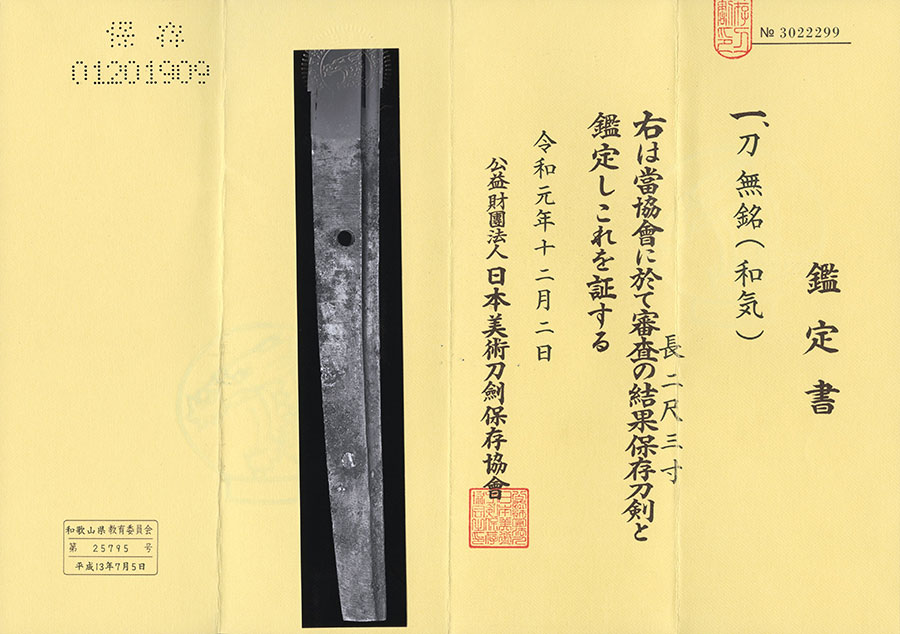 鑑定書
№ 3022299
一、刀 無銘(和気)
長二尺三寸
右は當協會に於て審査の結果保存刀剣と
鑑定しこれを証する
令和元年十二月二日
公益財團法人 日本美術刀劍保存協會
保存
01201909
和歌山県教育委員会
第 25795 号
平成13年7月5日